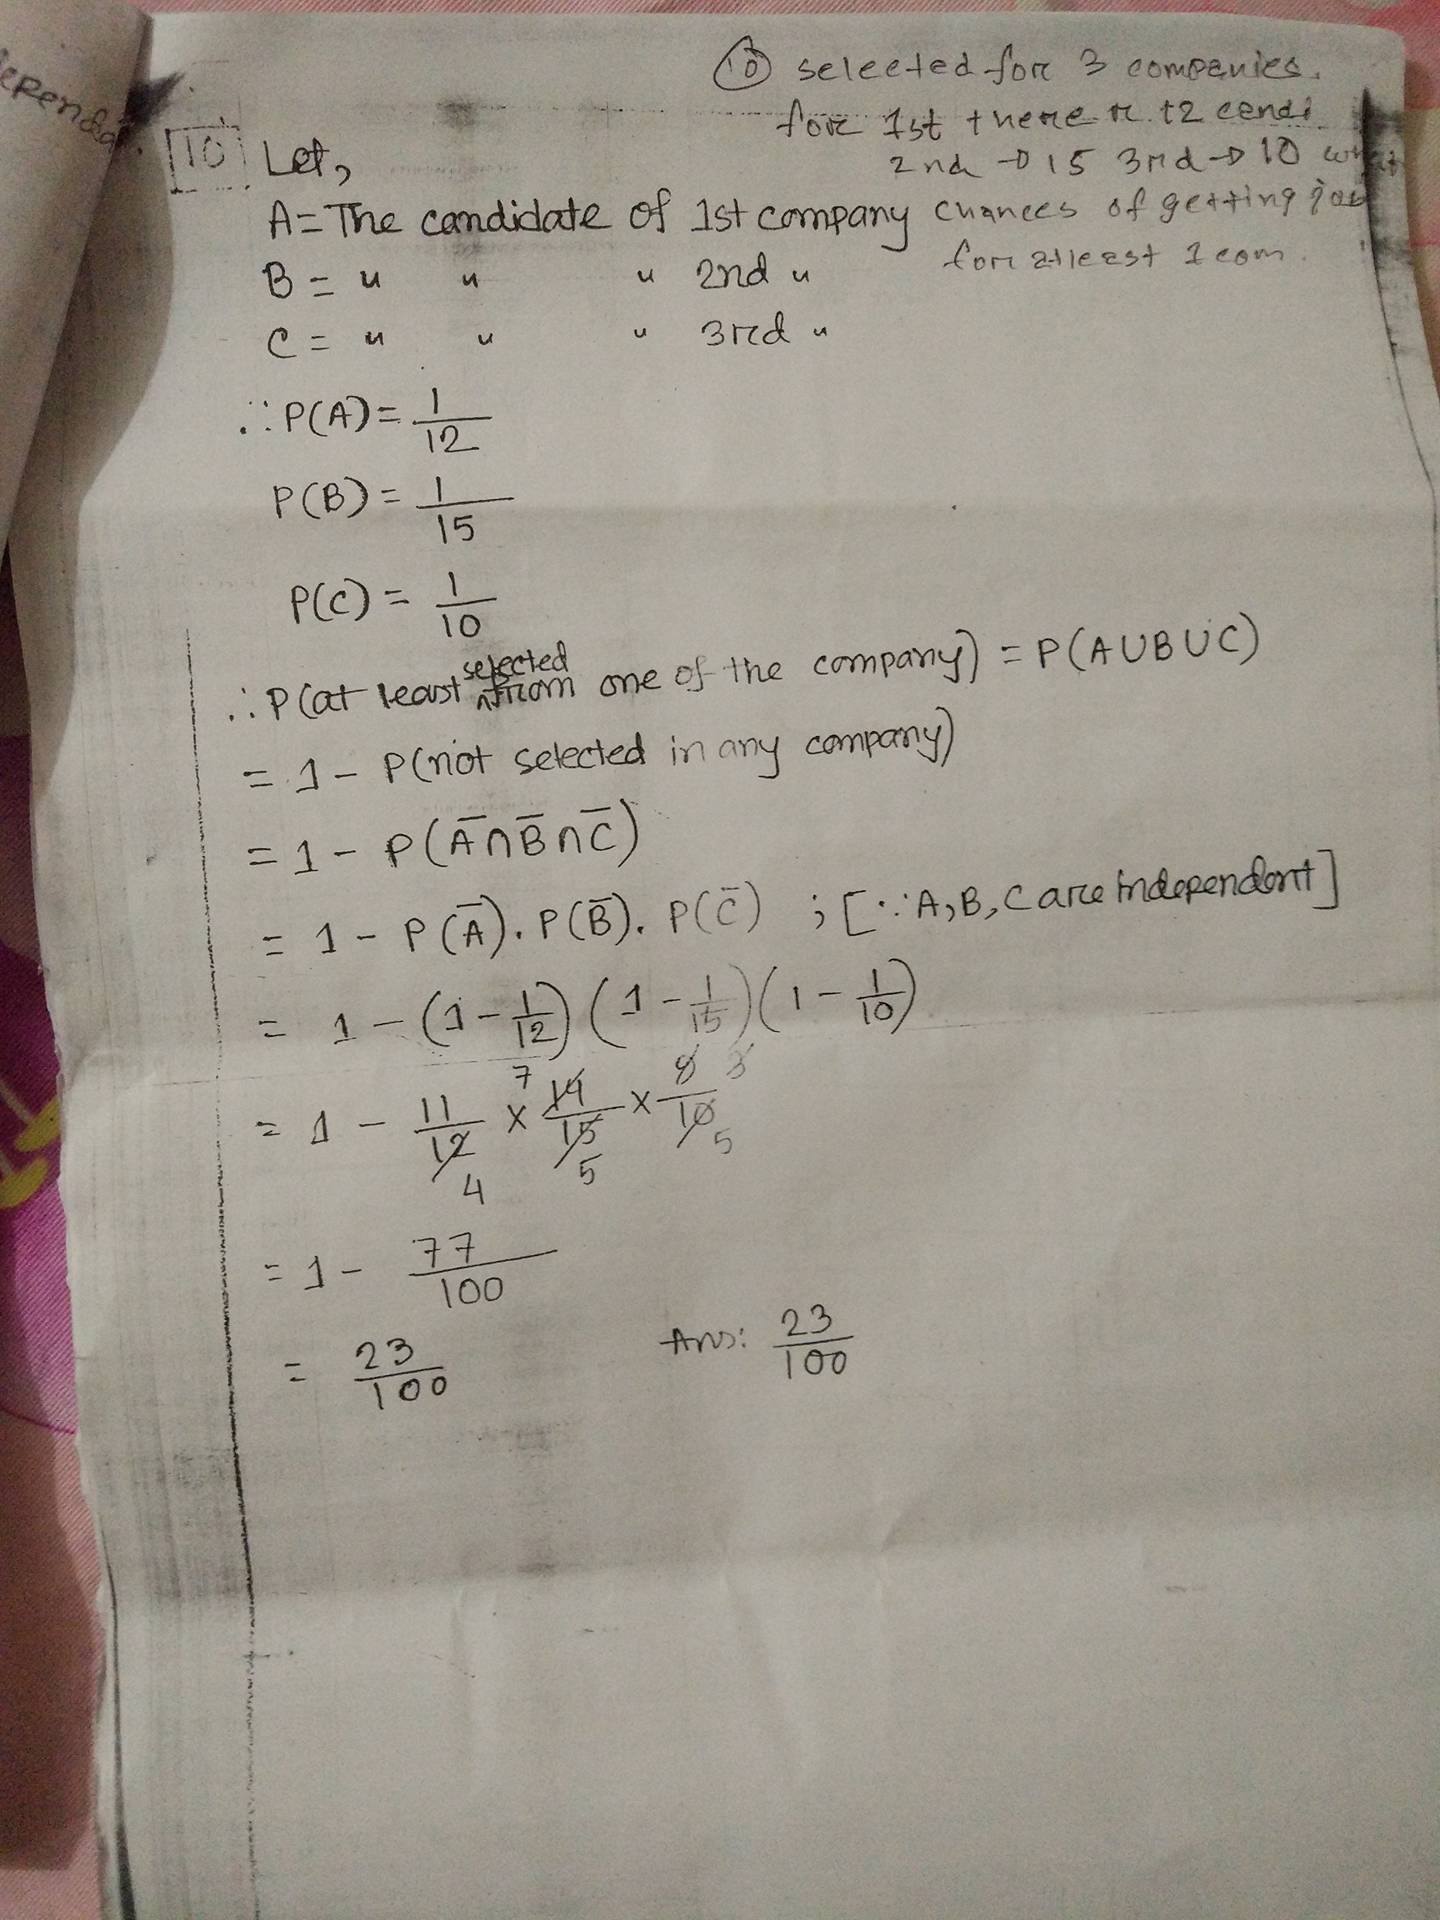 ⓘ⓪ selected for 3 companies.
for 1st there r 12 candi
2nd → 15 3rd → 10 what
chances of getting job
for atleast 1 com.
10 Let,
A = The candidate of 1st company
B = " " " 2nd "
C = " " " 3rd "
∴ P(A) = 1/12
P(B) = 1/15
P(C) = 1/10
∴ P(at least selected from one of the company) = P(A∪B∪C)
= 1 - P(not selected in any company)
= 1 - P(A̅∩B̅∩C̅)
= 1 - P(A̅). P(B̅). P(C̅) ; [∵ A, B, C are independent]
= 1 - (1 - 1/12) (1 - 1/15) (1 - 1/10)
= 1 - 11/12 × 14/15 × 9/10
7 3
4 5 5
= 1 - 77/100
= 23/100 Ans: 23/100